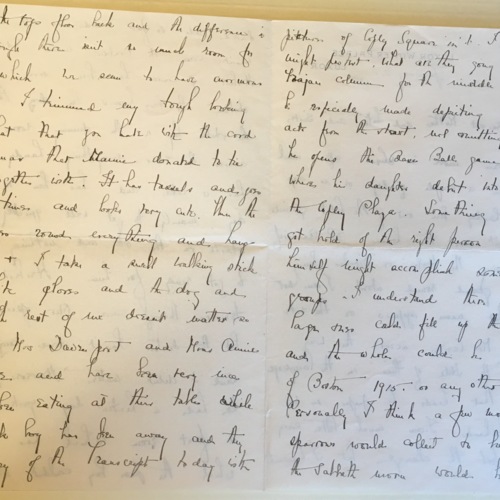 the top of her back and the difference is
there isn't so much room for
which we seem to have
I trimmed my tough looking
hat that you hate with the cord
that Mamie donated to be
together with. It has tassels and goes
and looks very cute. Then the
round everything and hangs
+ I take a small walking stick
gloves and the dog and
rest of me doesn't matter so
Mrs Davenport and Miss Annie
and have been very nice
eating at this table while
boy has been away and they
of the Transcript today with
picture of Copley Square in it. I
might protest. what are they going
Trajan column for the middle
be especially made depicting
acts from the start, not omitting
he opens the Base Ball game
where his daughter's debut
the Copley Plaza. Something
got hold of the right person
himself might accomplish some
groups - I understand there
Large ones could fill up the
and the whole could be
of Boston 1915 - or any other
Personally I think a few more
sparrows would collect to
the Sabbath morn would be